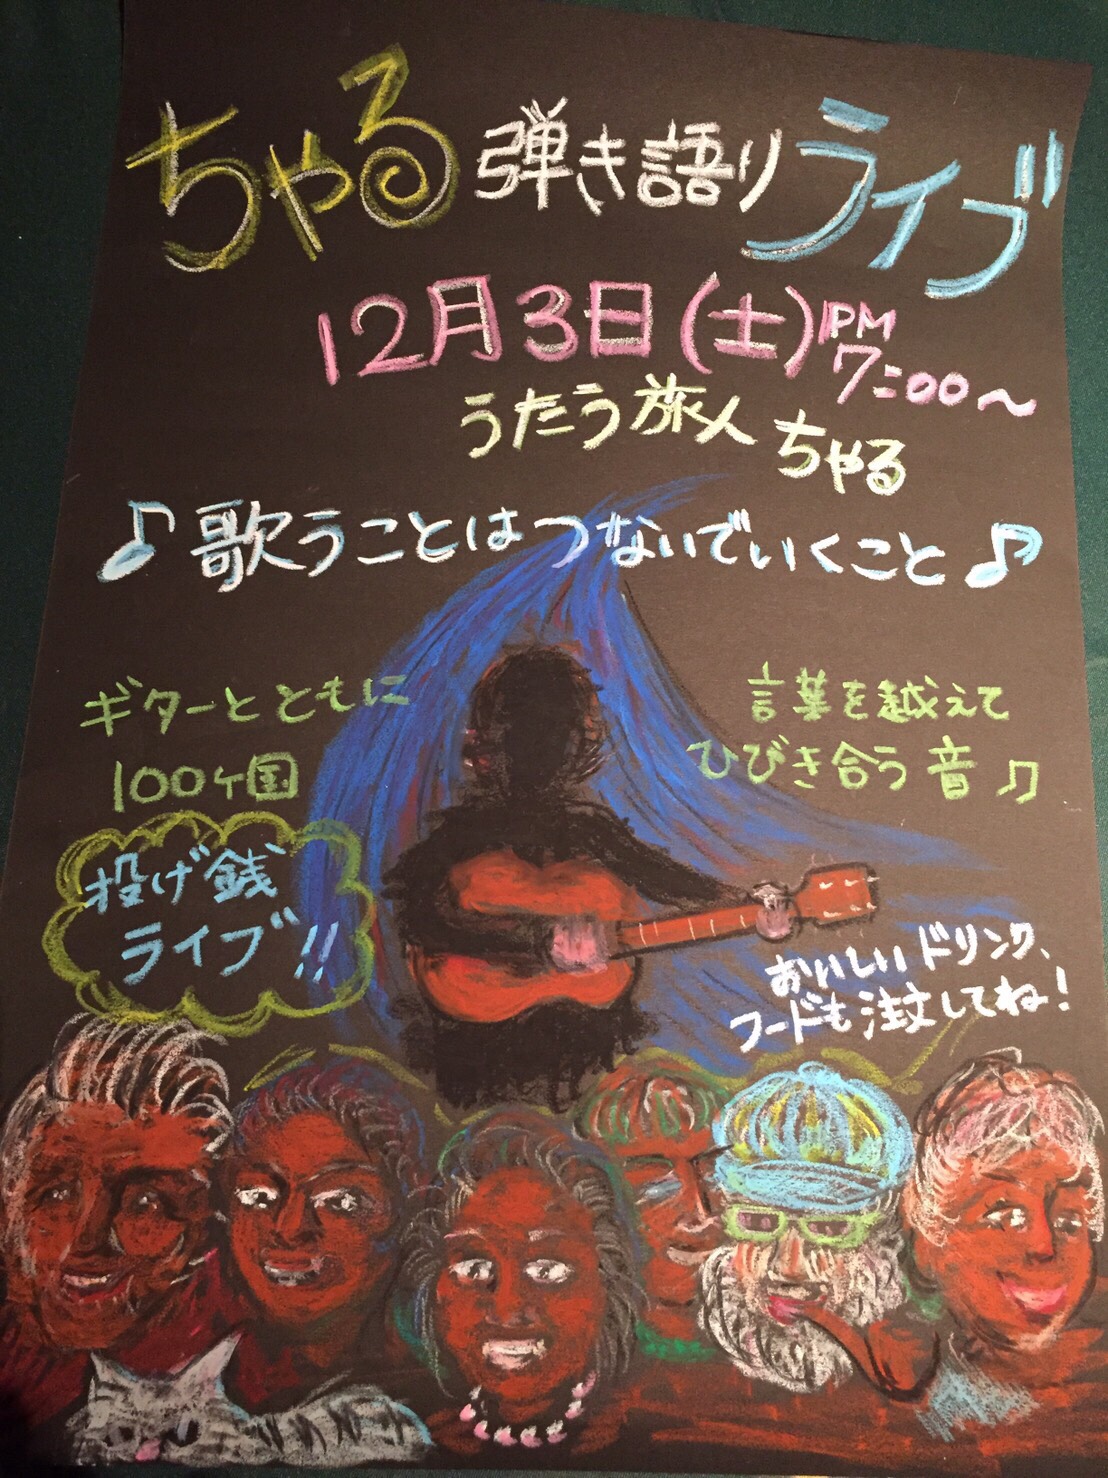 ちゃる 弾き語り ライブ
12月3日(土)PM 7:00〜
うたう旅人 ちゃる
♪歌うことはつないでいくこと♪
ギターとともに
100ヶ国
言葉を越えて
ひびき合う音♫
投げ銭
ライブ!!
おいしいドリンク、
フードも注文してね!